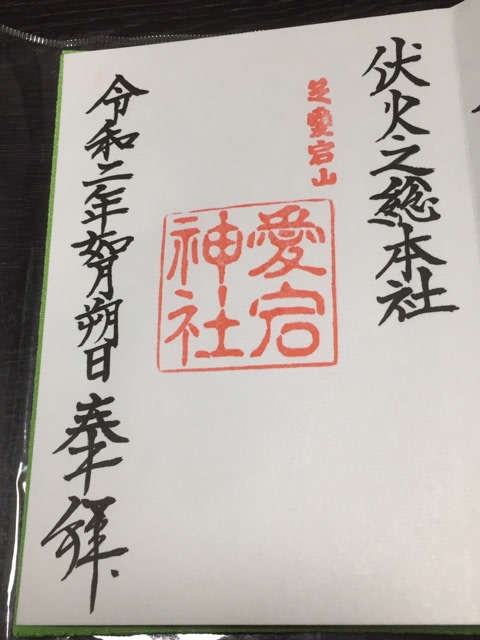 伏火之総本社
芝愛宕山
愛宕
神社
令和二年如月朔日奉拝